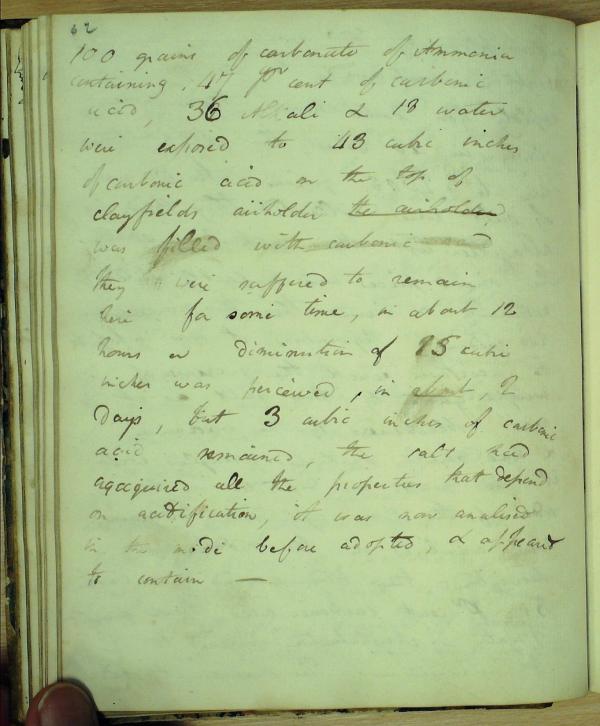 62
100 grains of carbonate of Ammonia
containing . 47 pr cent of carbonic
acid, 36 Alkali & 18 water
were exposed to 43 cubic inches
of carbonic acid on the top of
clayfields airholder the airholder
was filled with carbonic acid
they were suffered to remain
here for some time, in about 12
hours a diminution of 15 cubic
inches was perceived, in about, 2
days, but 3 cubic inches of carbonic
acid remained, the salt had
aqaquired all the properties that depend
on acidification, it was now analised
in the mode before adopted, & appeared
to contain —